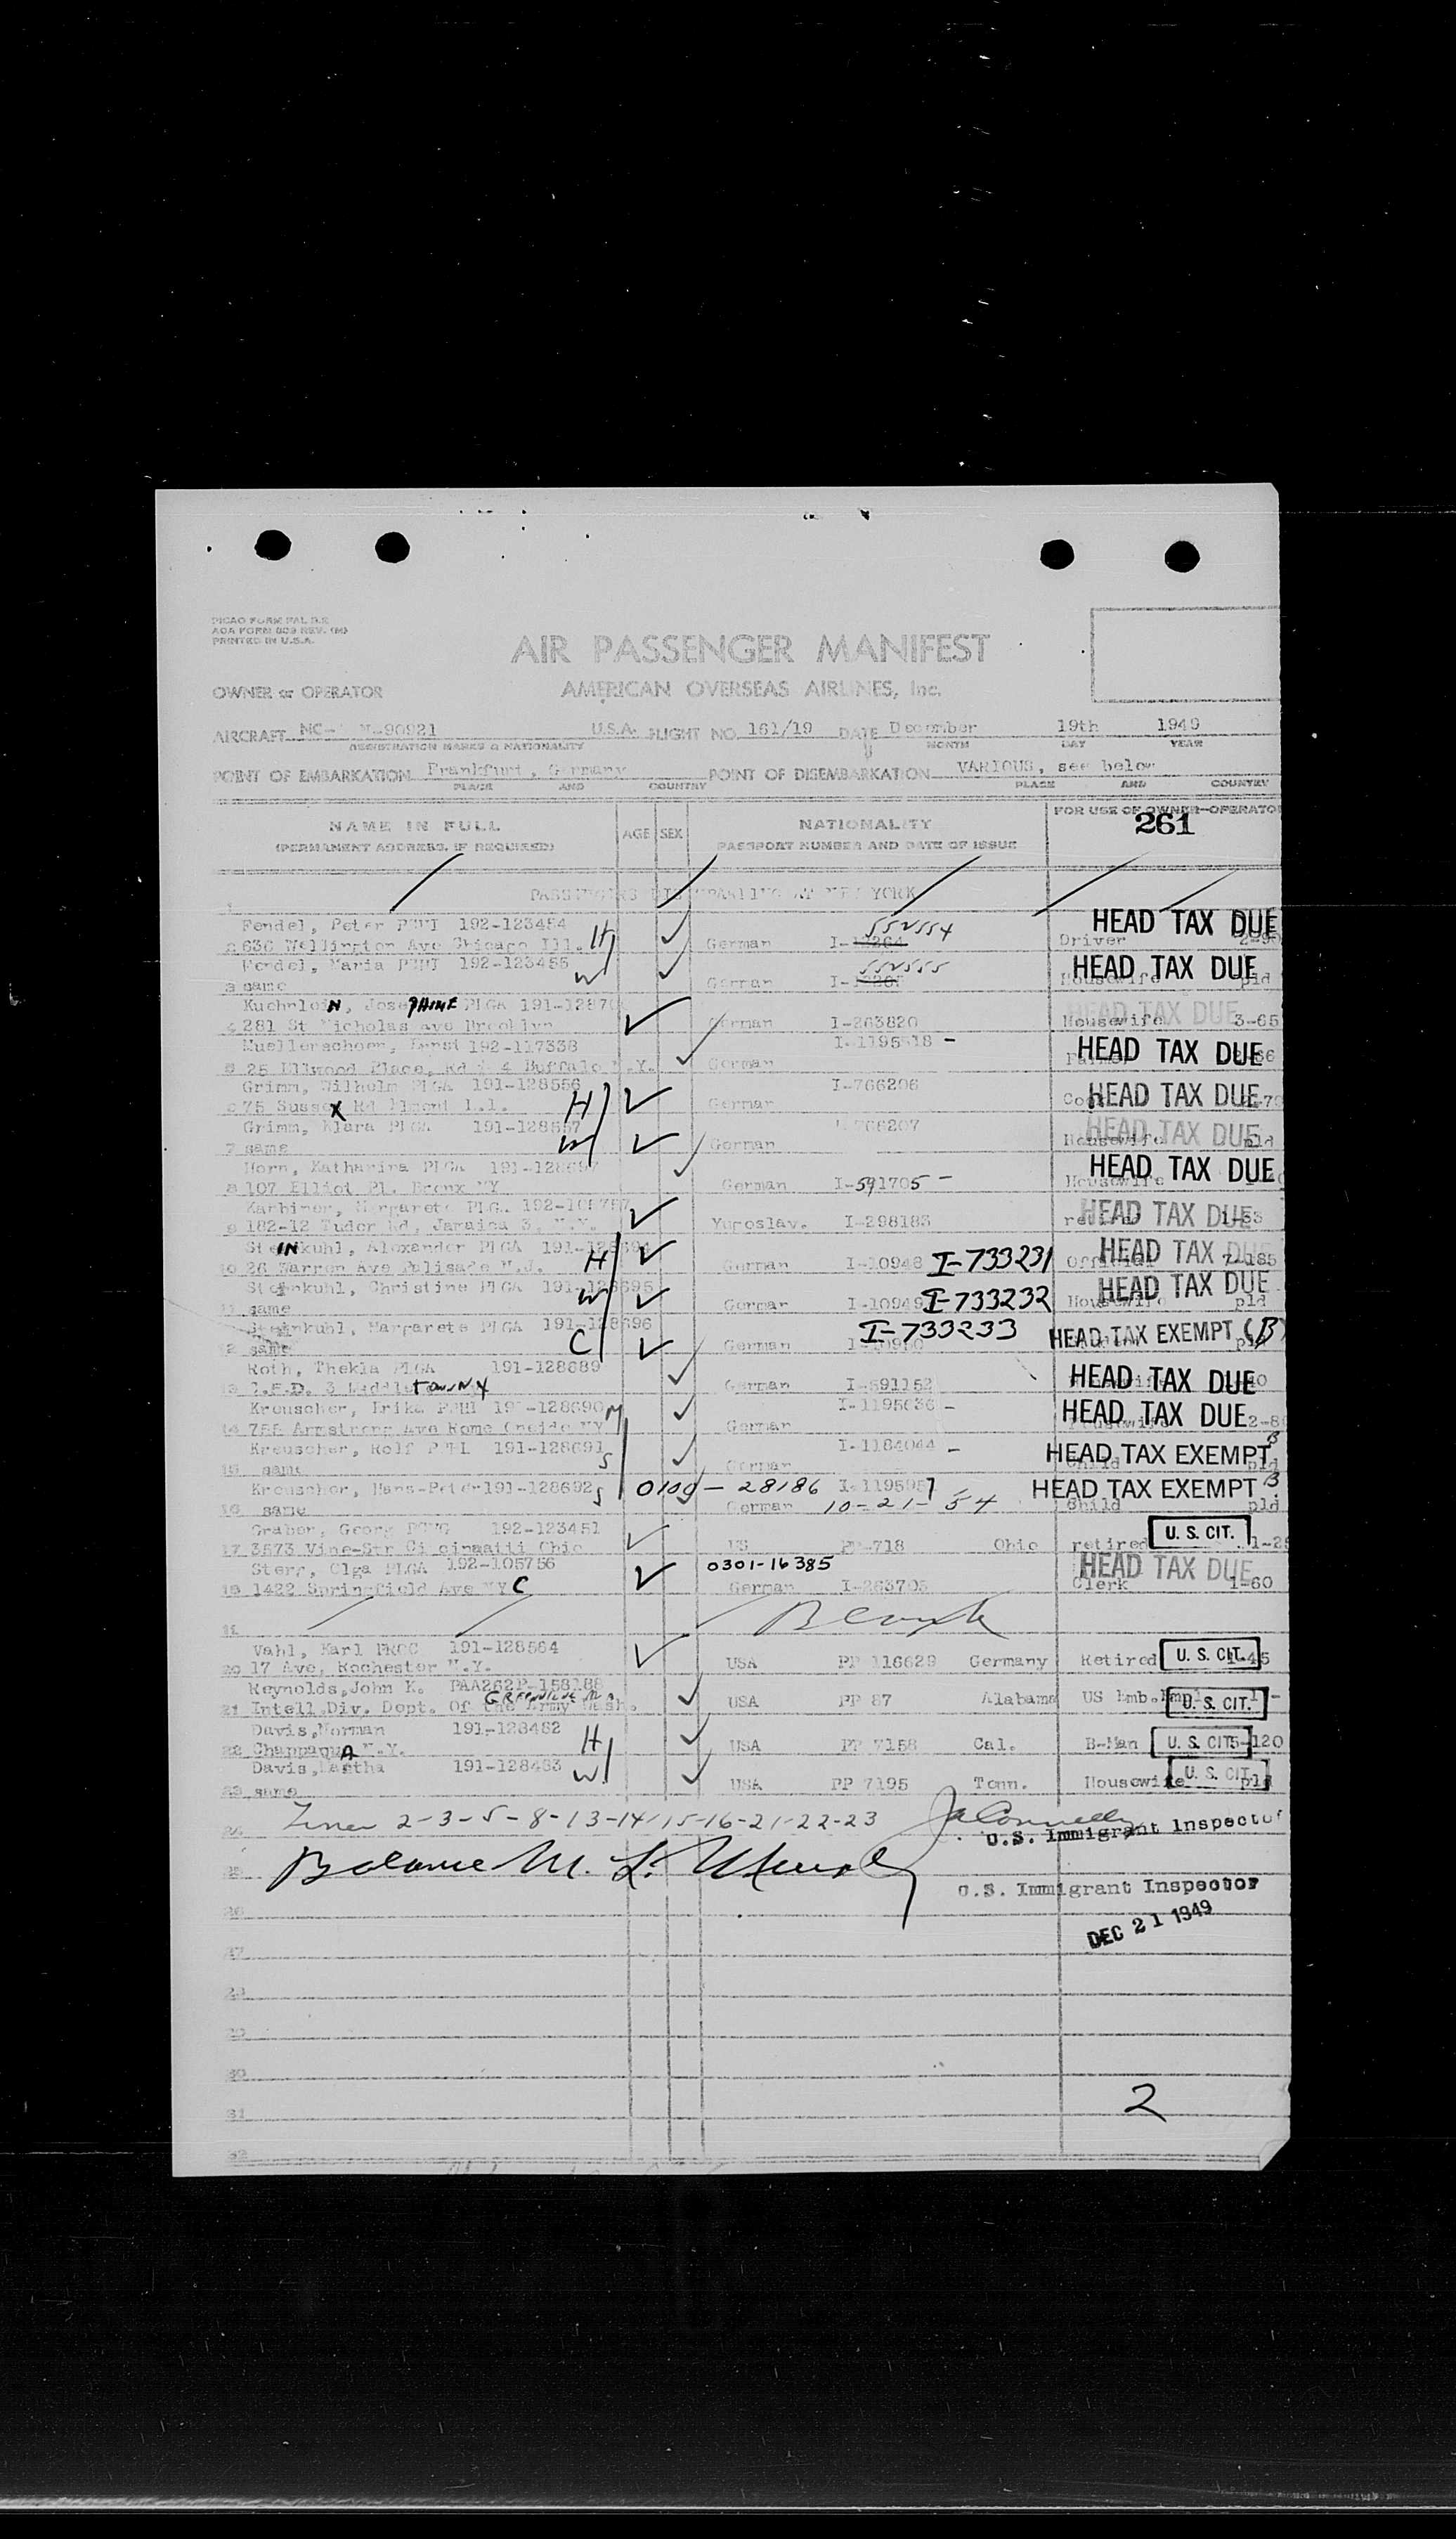 PICAO FORM PAL 2.2
AOA FORM 803 REV. (M)
PRINTED IN U.S.A.
AIR PASSENGER MANIFEST
OWNER or OPERATOR AMERICAN OVERSEAS AIRLINES, Inc.
AIRCRAFT NC- N-90921 U.S.A. FLIGHT NO. 161/19 DATE December 19th 1949
REGISTRATION MARKS & NATIONALITY MONTH DAY YEAR
POINT OF EMBARKATION Frankfurt, Germany POINT OF DISEMBARKATION VARIOUS, see below
PLACE AND COUNTRY PLACE AND COUNTRY
NAME IN FULL AGE SEX NATIONALITY FOR USE OF OWNER-OPERATOR
(PERMANENT ADDRESS, IF REQUIRED) PASSPORT NUMBER AND DATE OF ISSUE 261
1 PASSENGERS DISEMBARKING AT NEW YORK
Fendel, Peter 192-123454 552554 HEAD TAX DUE
2 636 Wellington Ave Chicago Ill. H German I- Driver
Fendel, Maria 192-123455 552555 HEAD TAX DUE
3 same W German I- Housewife pld
Kuehnlein, Josephine PLGA 191-12870
4 281 St Nicholas Ave Brooklyn German I-263820 Housewife 3-65 HEAD TAX DUE
Muellerschoen, Ernst 192-117338 I-1195518 - HEAD TAX DUE
5 25 Ellwood Place, Rd 4 Buffalo N.Y. German
Grimm, Wilhelm PLGA 191-128556 I-766206 HEAD TAX DUE
6 75 Sussex Rd Elmont L.I. H German
Grimm, Klara PLGA 191-128557 766207 HEAD TAX DUE
7 same W German Housewife pld
Horn, Katharina PLGA 191-128697 HEAD TAX DUE
8 107 Elliot Pl. Bronx NY German I-591705 - Housewife
Margarete PLGA 192-105757
9 182-12 Tudor Rd, Jamaica 3, N.Y. Yugoslav. I-298183 retired HEAD TAX DUE 1-53
Steinkuhl, Alexander PLGA 191-128694
10 26 Warren Ave Palisade N.J. H German I-10948 I-733231 Official HEAD TAX DUE 7-185
Steinkuhl, Christine PLGA 191-128695
11 same W German I-10949 I-733232 Housewife HEAD TAX DUE pld
Steinkuhl, Margarete PLGA 191-128696 I-733233
12 same C German I-10950 HEAD TAX EXEMPT (B) pld
Roth, Thekla PLGA 191-128689
13 R.F.D. 3 Middletown NY German I-591152 HEAD TAX DUE
Kreuscher, Erika 191-128690 M I-1195636 -
14 755 Armstrong Ave Rome Oneida NY German Housewife HEAD TAX DUE
Kreuscher, Rolf 191-128691 S I-1184044 - HEAD TAX EXEMPT B
15 same German Child pld
Kreuscher, Hans-Peter 191-128692 S 0100 - 28186 I-1195957 - HEAD TAX EXEMPT B
16 same German 10-21-54 Child pld
Graber, Georg 192-123451 U.S. CIT.
17 3573 Vine-Str Ci cinnatii Ohio US PP-718 Ohio retired
Sterr, Olga PLGA 192-105756 0301-16385 HEAD TAX DUE
18 1422 Springfield Ave NYC German I-263703 Clerk 1-60
19 Blank
Vahl, Karl 191-128564
20 17 Ave, Rochester N.Y. USA PP 116629 Germany Retired U.S. CIT. 1-45
Reynolds, John K. PAA262P-158188
21 Intell. Div. Dept. Of the Army Wash. USA PP 87 Alabama US Emb. U.S. CIT.
Davis, Norman 191-128482 H
22 Chappaqua N.Y. USA PP 7158 Cal. B-Man U.S. CIT. 5-120
Davis, Martha 191-128483 W
23 same USA PP 7195 Tenn. Housewife U.S. CIT. pld
24 Lines 2-3-5-8-13-14-15-16-21-22-23 U.S. Immigrant Inspector
25 Balance M. L. U.S. Immigrant Inspector
26 DEC 21 1949
27
28
29
30
31 2
32